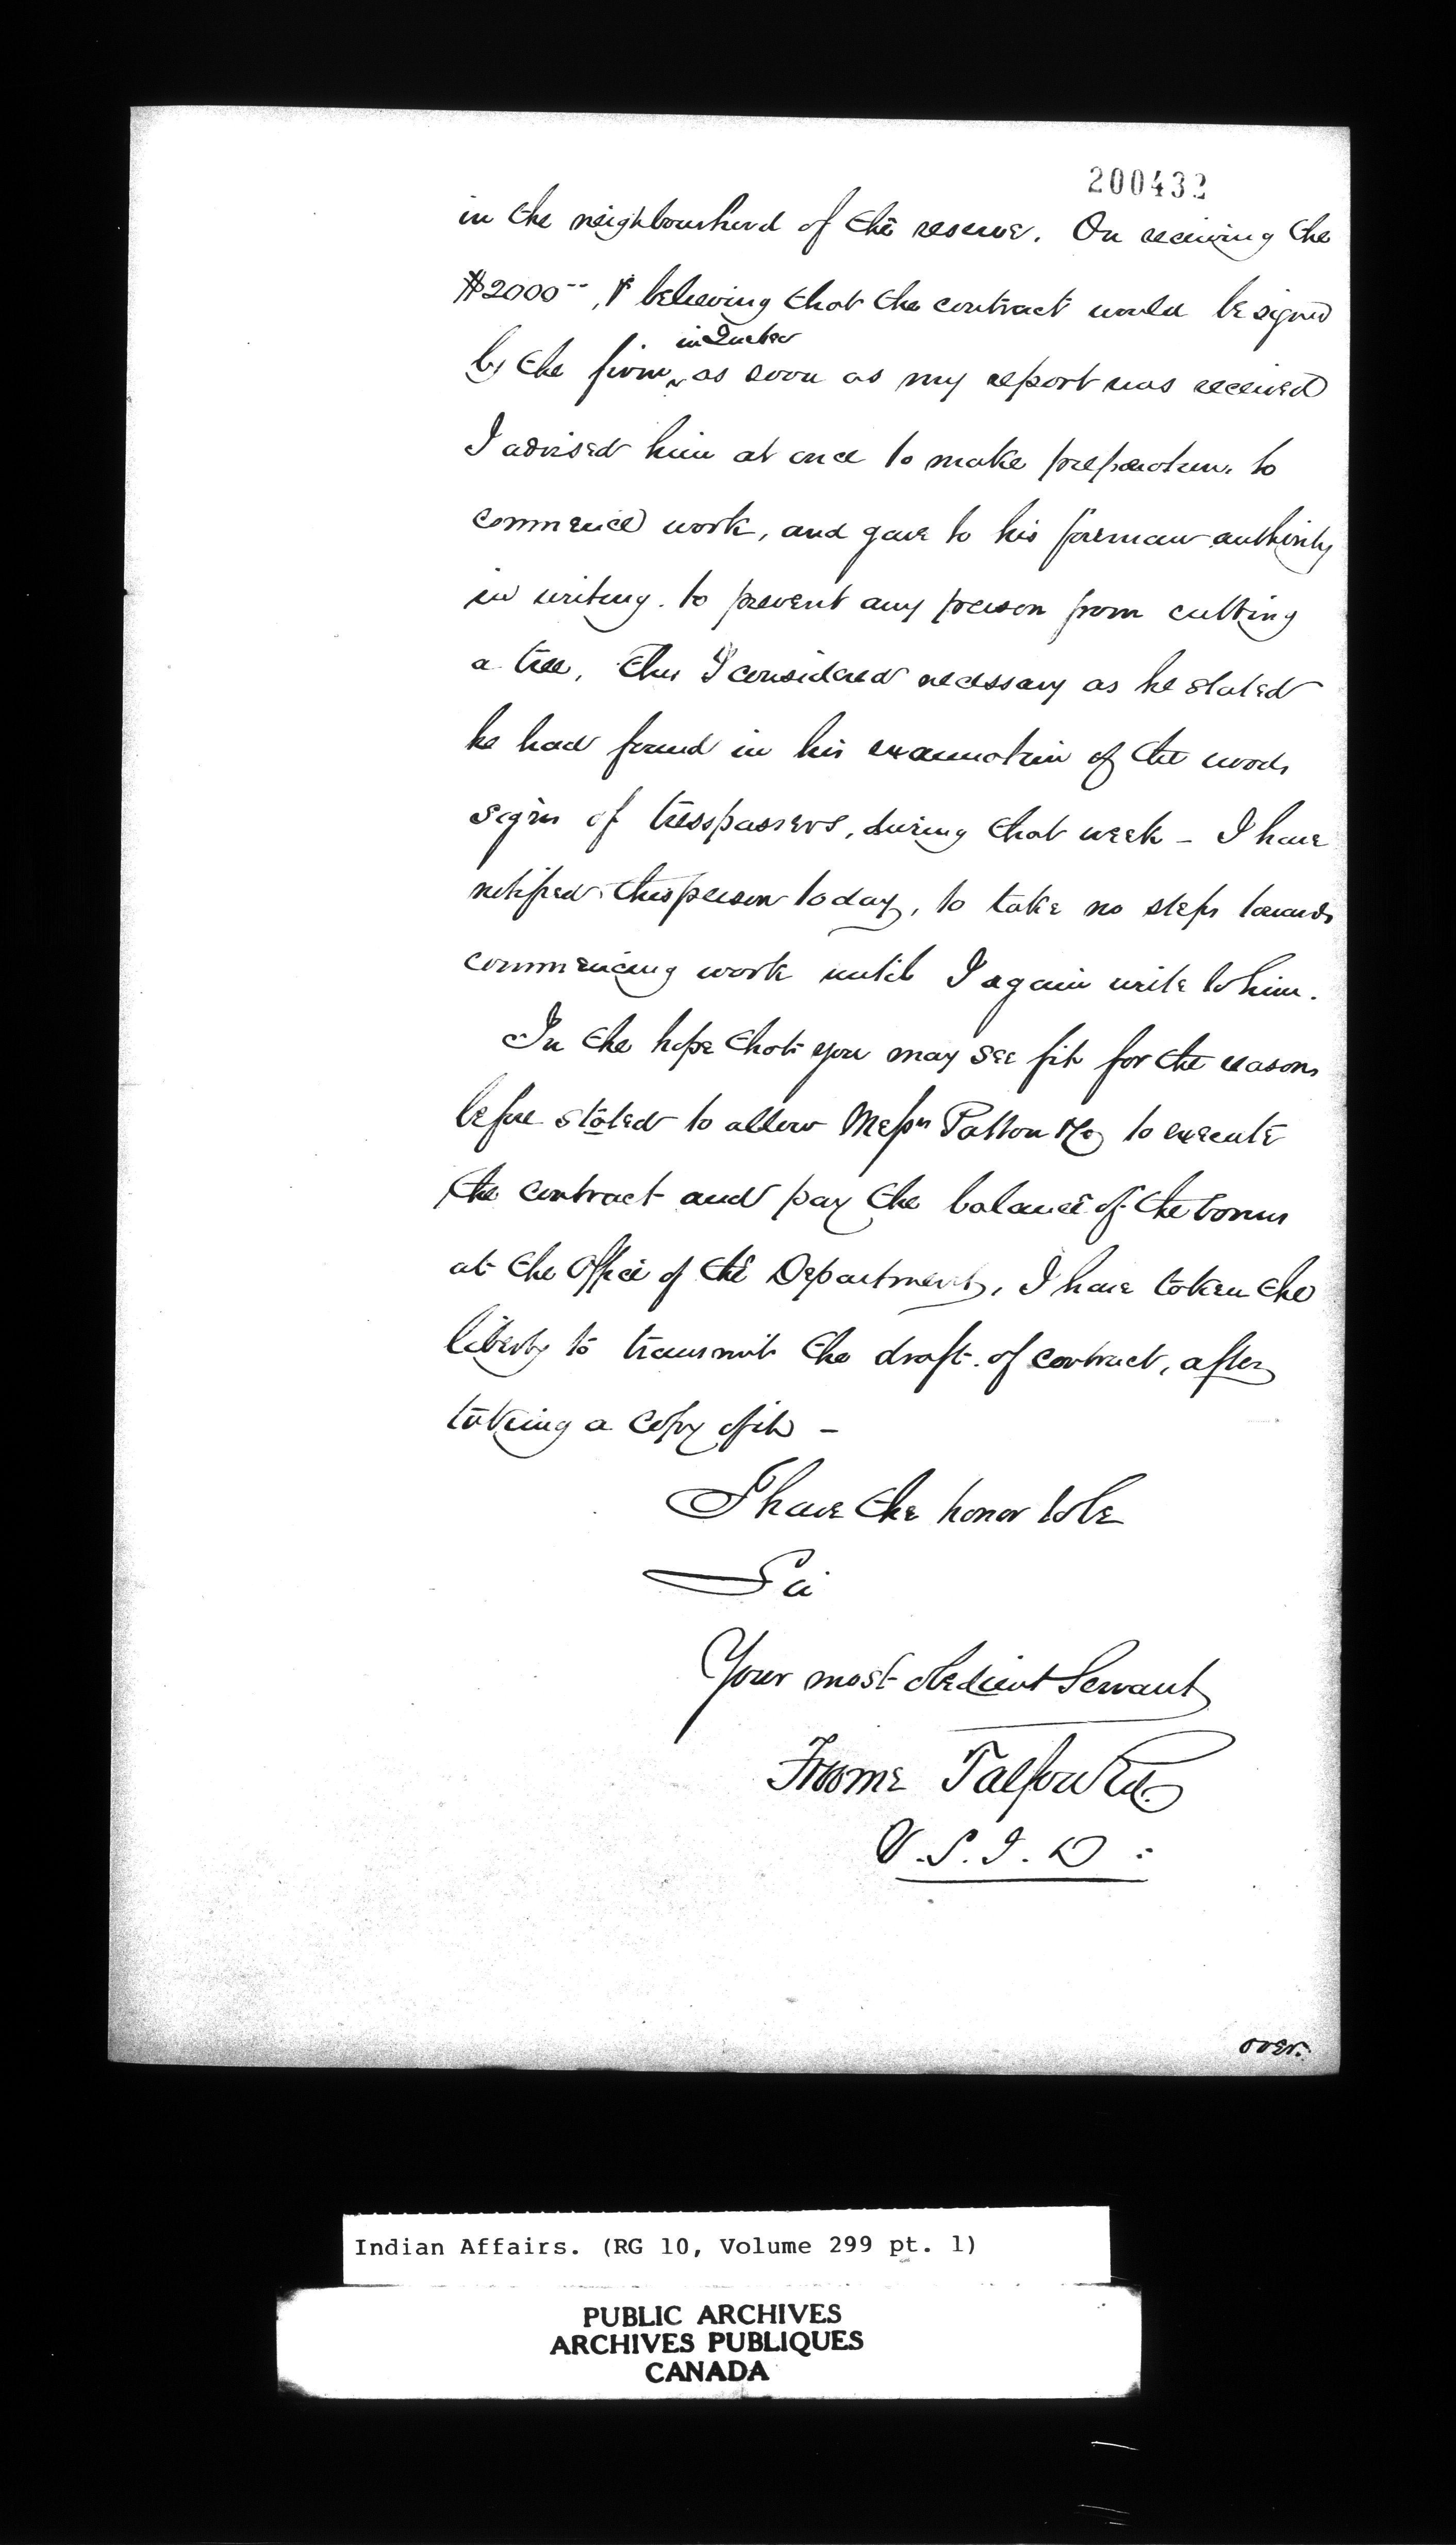 200432
in the neighbourhood of the reserve. On receiving the
$2000--, & believing that the contract would be signed
in Quebec
by the firm, as soon as my report was received
I advised him at once to make preparations to
commence work, and gave to his foreman authority
in writing. to prevent any person from cutting
a tree, this I considered necessary as he stated
he had found in his examination of the woods
signs of tresspassers, during that week - I have
notified this person today, to take no steps towards
commencing work until I again write to him.
In the hope that you may see fit for the reasons
before stated to allow Messrs Patton & Co to execute
the contract and pay the balance of the bonus
at the Office of the Department, I have taken the
liberty to transmit the draft of contract, after
taking a copy of it -
I have the honor to be
Sir
Your most obedient Servant
Froome Talfourd.
V.S.I.D:
over.
Indian Affairs. (RG 10, Volume 299 pt. 1)
PUBLIC ARCHIVES
ARCHIVES PUBLIQUES
CANADA